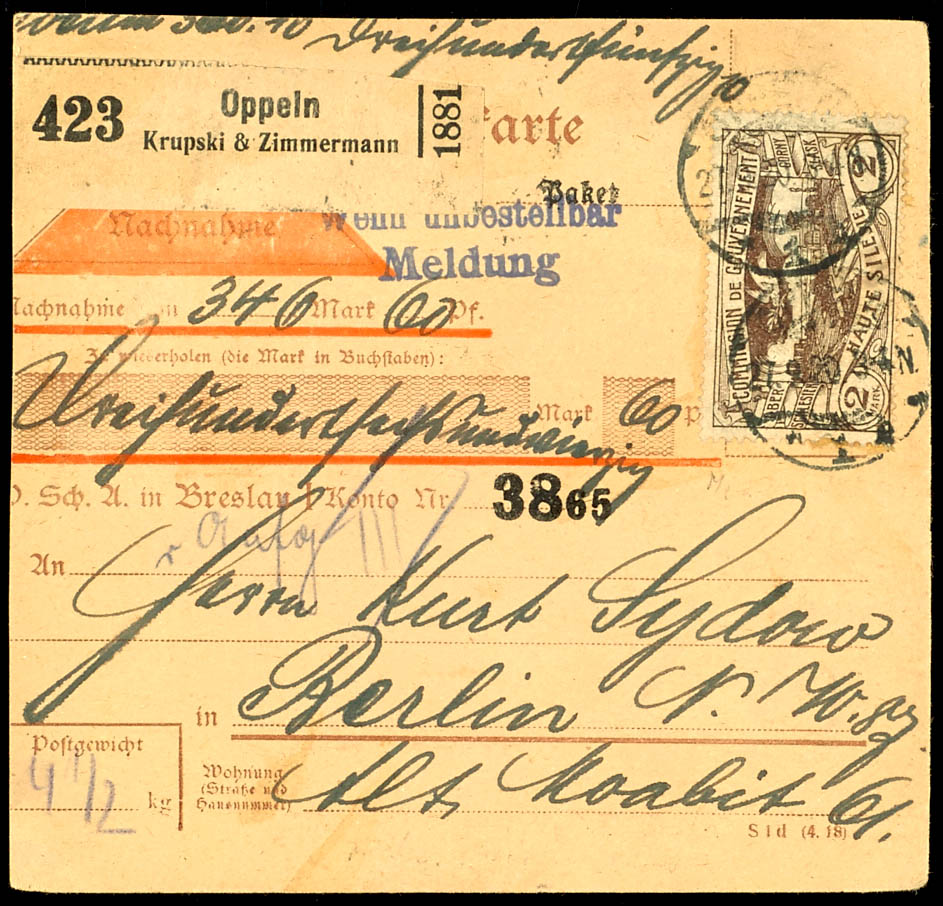 Dreihundertfünfzig
423 Oppeln
Krupski & Zimmermann
1881
karte
Paket
Nachnahme
Wenn unbestellbar
Meldung
COMMISSION DE GOUVERNEMENT
HAUTE SILESIE
2
2 MARK
Nachnahme 346 Mark 60 Pf.
Zu wiederholen (die Mark in Buchstaben):
Dreihundertsechsundvierzig Mark 60 P
Sch. A. in Breslau Konto Nr. 3865
An Herrn Kurt Sydow
in Berlin N. W. 87
Postgewicht
4 1/2 kg
Wohnung
(Straße und
Hausnummer)
Alt Moabit 61.
Std (4. 18)